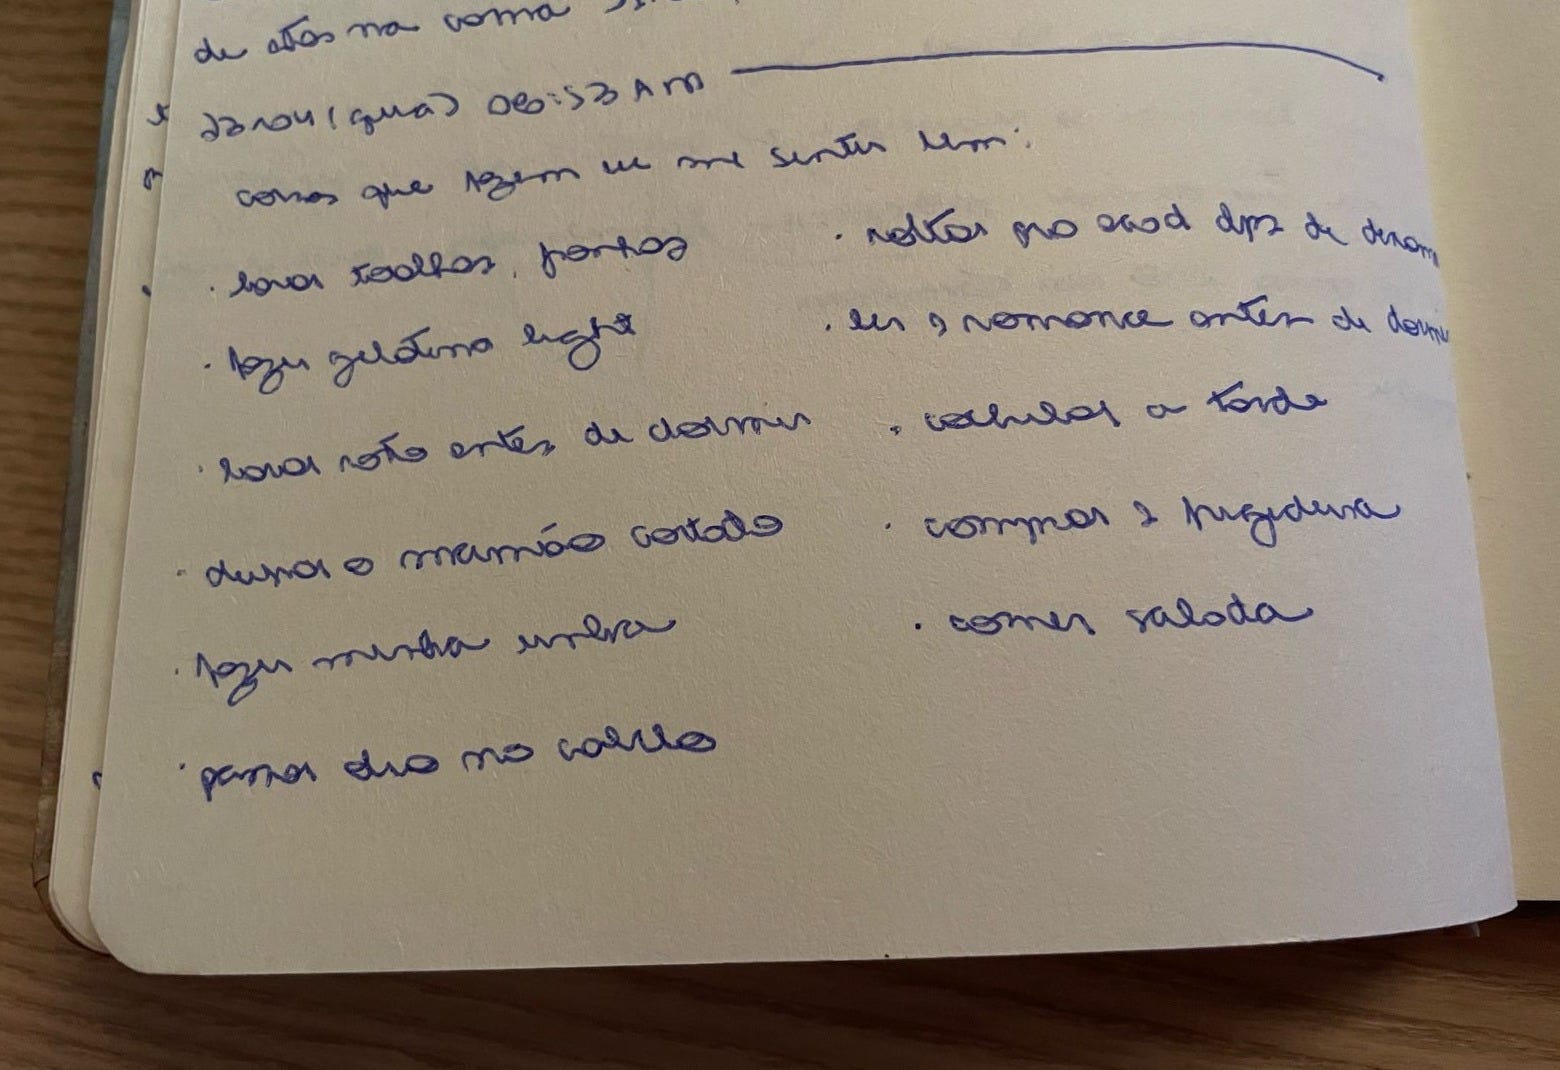 de atos na cama
23.04 (qua) 08:53 AM
coisas que fazem eu me sentir bem:
· lavar toalhas, panos
· fazer gelatina light
· lavar rosto antes de dormir
· deixar o mamão cortado
· fazer minha unha
· passar óleo no cabelo
· voltar pro acad dps de
· ler 1 romance antes de dormir
· cochilar a tarde
· comprar 1 frigideira
· comer salada